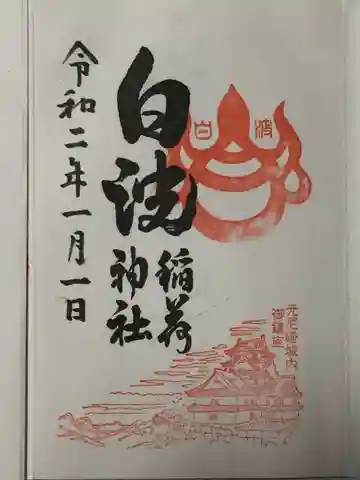 元尼崎城内
御鎮座
白波
白波
稲荷
神社
令和二年一月一日